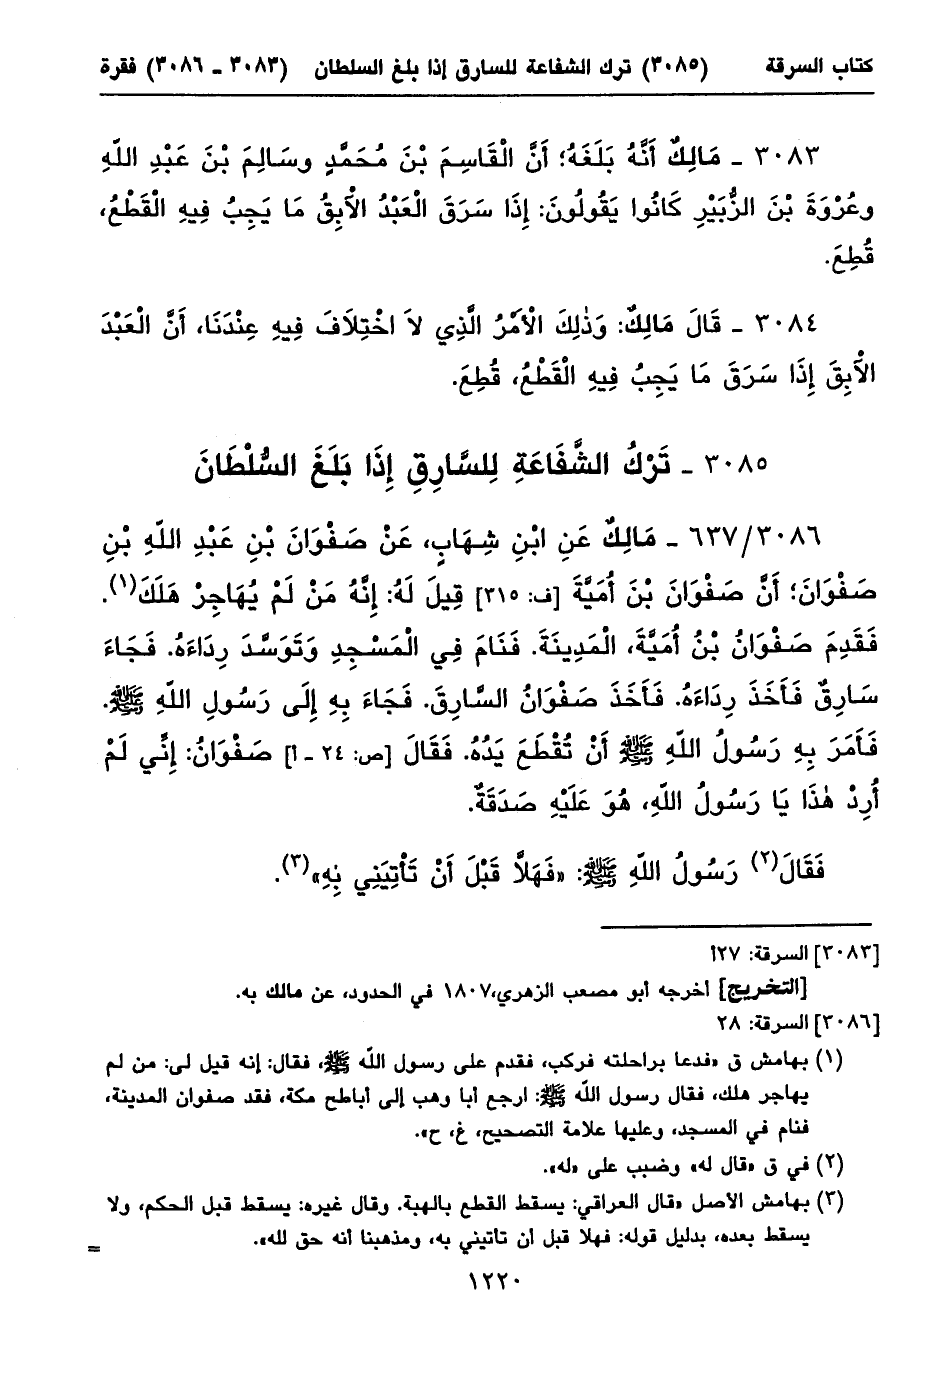 كتاب السرقة (٣٠٨٥) ترك الشفاعة للسارق إذا بلغ السلطان (٣٠٨٣ ـ ٣٠٨٦) فقرة
٣٠٨٣ ـ مَالِكٌ أَنَّهُ بَلَغَهُ؛ أَنَّ الْقَاسِمَ بْنَ مُحَمَّدٍ وسَالِمَ بْنَ عَبْدِ اللّهِ
وعُرْوَةَ بْنَ الزُّبَيْرِ كَانُوا يَقُولُونَ: إِذَا سَرَقَ الْعَبْدُ الْأَبِقُ مَا يَجِبُ فِيهِ الْقَطْعُ،
قُطِعَ.
٣٠٨٤ ـ قَالَ مَالِكٌ: وَذٰلِكَ الْأَمْرُ الَّذِي لاَ اخْتِلَافَ فِيهِ عِنْدَنَا، أَنَّ الْعَبْدَ
الْأَبِقَ إِذَا سَرَقَ مَا يَجِبُ فِيهِ الْقَطْعُ، قُطِعَ.
٣٠٨٥ ـ تَرْكُ الشَّفَاعَةِ لِلسَّارِقِ إِذَا بَلَغَ السُّلْطَانَ
٦٣٧/٣٠٨٦ ـ مَالِكٌ عَنِ ابْنِ شِهَابٍ، عَنْ صَفْوَانَ بْنِ عَبْدِ اللّهِ بْنِ
صَفْوَانَ؛ أَنَّ صَفْوَانَ بْنَ أُمَيَّةَ [ف: ٣١٥] قِيلَ لَهُ: إِنَّهُ مَنْ لَمْ يُهَاجِرْ هَلَكَ(١).
فَقَدِمَ صَفْوَانُ بْنُ أُمَيَّةَ، الْمَدِينَةَ. فَنَامَ فِي الْمَسْجِدِ وَتَوَسَّدَ رِدَاءَهُ. فَجَاءَ
سَارِقٌ فَأَخَذَ رِدَاءَهُ. فَأَخَذَ صَفْوَانُ السَّارِقَ. فَجَاءَ بِهِ إِلَى رَسُولِ اللّهِ ﷺ.
فَأَمَرَ بِهِ رَسُولُ اللّهِ ﷺ أَنْ تُقْطَعَ يَدُهُ. فَقَالَ [ص: ٢٤ ـ أ] صَفْوَانُ: إِنِّي لَمْ
أُرِدْ هٰذَا يَا رَسُولُ اللّهِ، هُوَ عَلَيْهِ صَدَقَةٌ.
فَقَالَ(٢) رَسُولُ اللّهِ ﷺ: «فَهَلاَّ قَبْلَ أَنْ تَأْتِيَنِي بِهِ»(٣).
[٣٠٨٣] السرقة: ٢٧أ
[التخريج] أخرجه أبو مصعب الزهري،١٨٠٧ في الحدود، عن مالك به.
[٣٠٨٦] السرقة: ٢٨
(١) بهامش ق «فدعا براحلته فركب، فقدم على رسول الله ﷺ، فقال: إنه قيل لي: من لم
يهاجر هلك، فقال رسول الله ﷺ: ارجع أبا وهب إلى أباطح مكة، فقد صفوان المدينة،
فنام في المسجد، وعليها علامة التصحيح، غ، ح».
(٢) في ق «قال له» وضبب على «له».
(٣) بهامش الأصل «قال العراقي: يسقط القطع بالهبة. وقال غيره: يسقط قبل الحكم، ولا
يسقط بعده، بدليل قوله: فهلا قبل أن تأتيني به، ومذهبنا أنه حق لله».
=
١٢٢٠